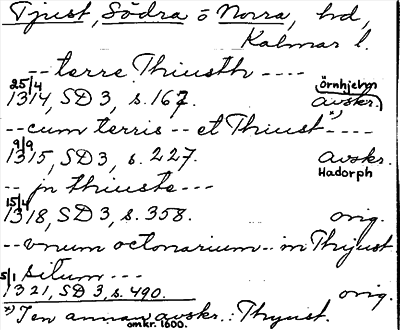 Tjust, Södra o Norra, hd,
Kalmar l.
-- terre Thiusth ----
25/4 örnhjelm
1314, SD 3, s. 167. avskr. x)
-- cum terris -- et Thiust ----
9/9
1315, SD 3, s. 227. avskr.
Hadorph
-- jn thiuste ---
15/4
1318, SD 3, s. 358. orig.
-- vnum octonarium -- in Thijust
situm ---
5/1
1321, SD 3, s. 490. orig.
x) I en annan avskr. : Thyust.
omkr. 1600.